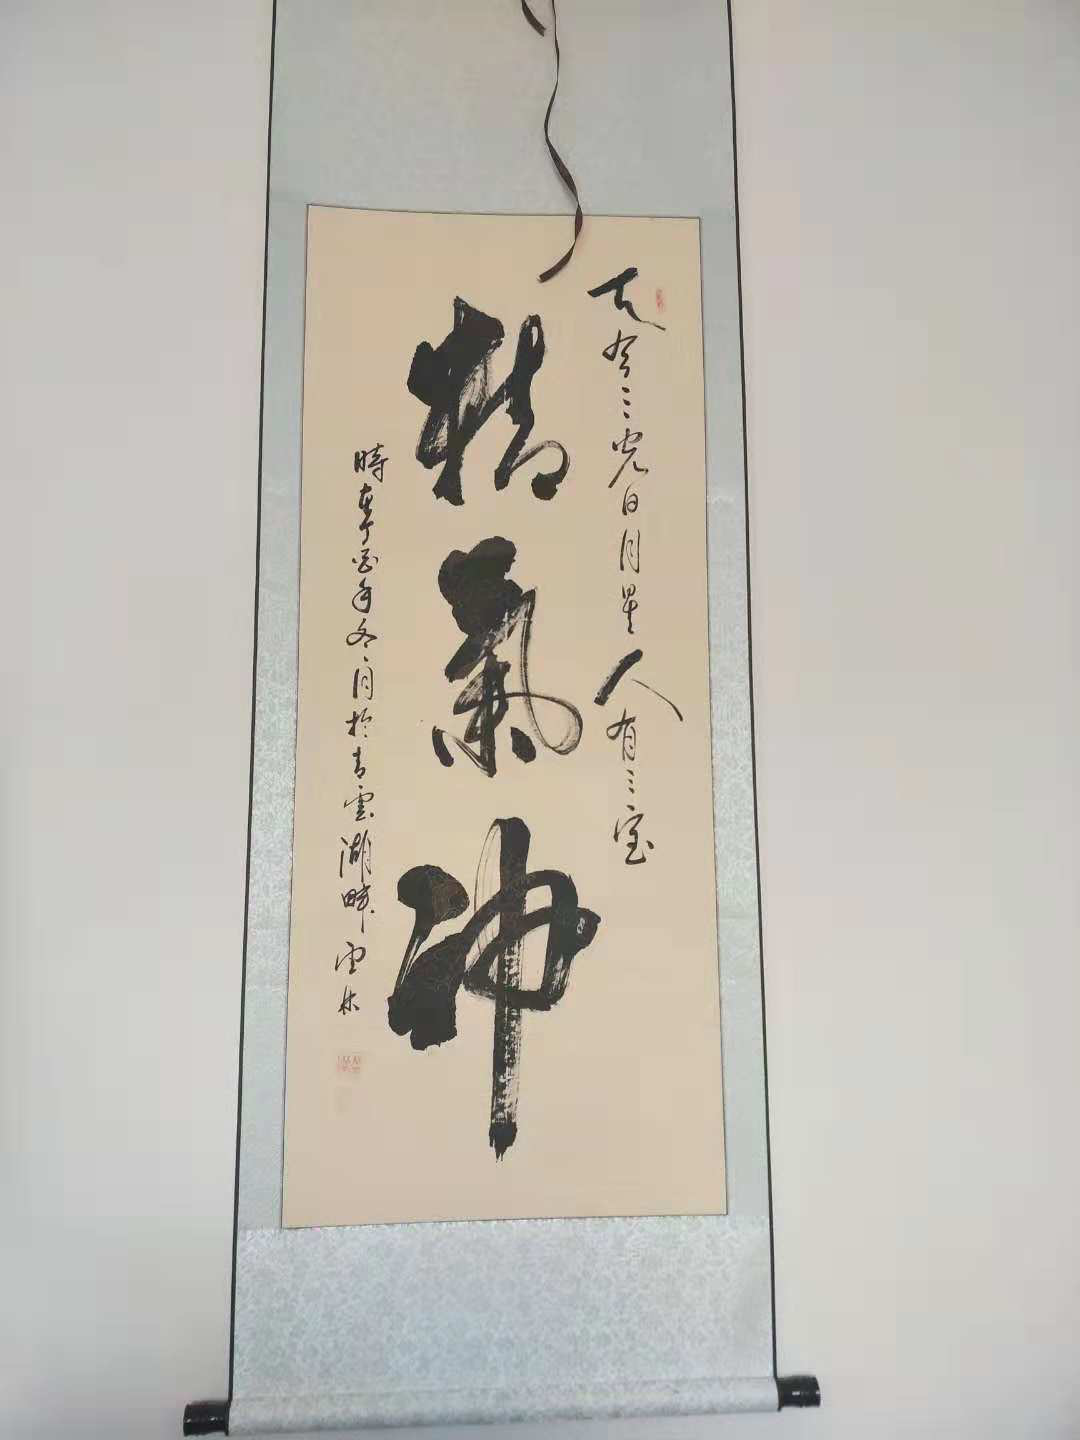 天有三光日月星人有三宝
精氣神
時在丁酉年冬月於青雲湖畔雲